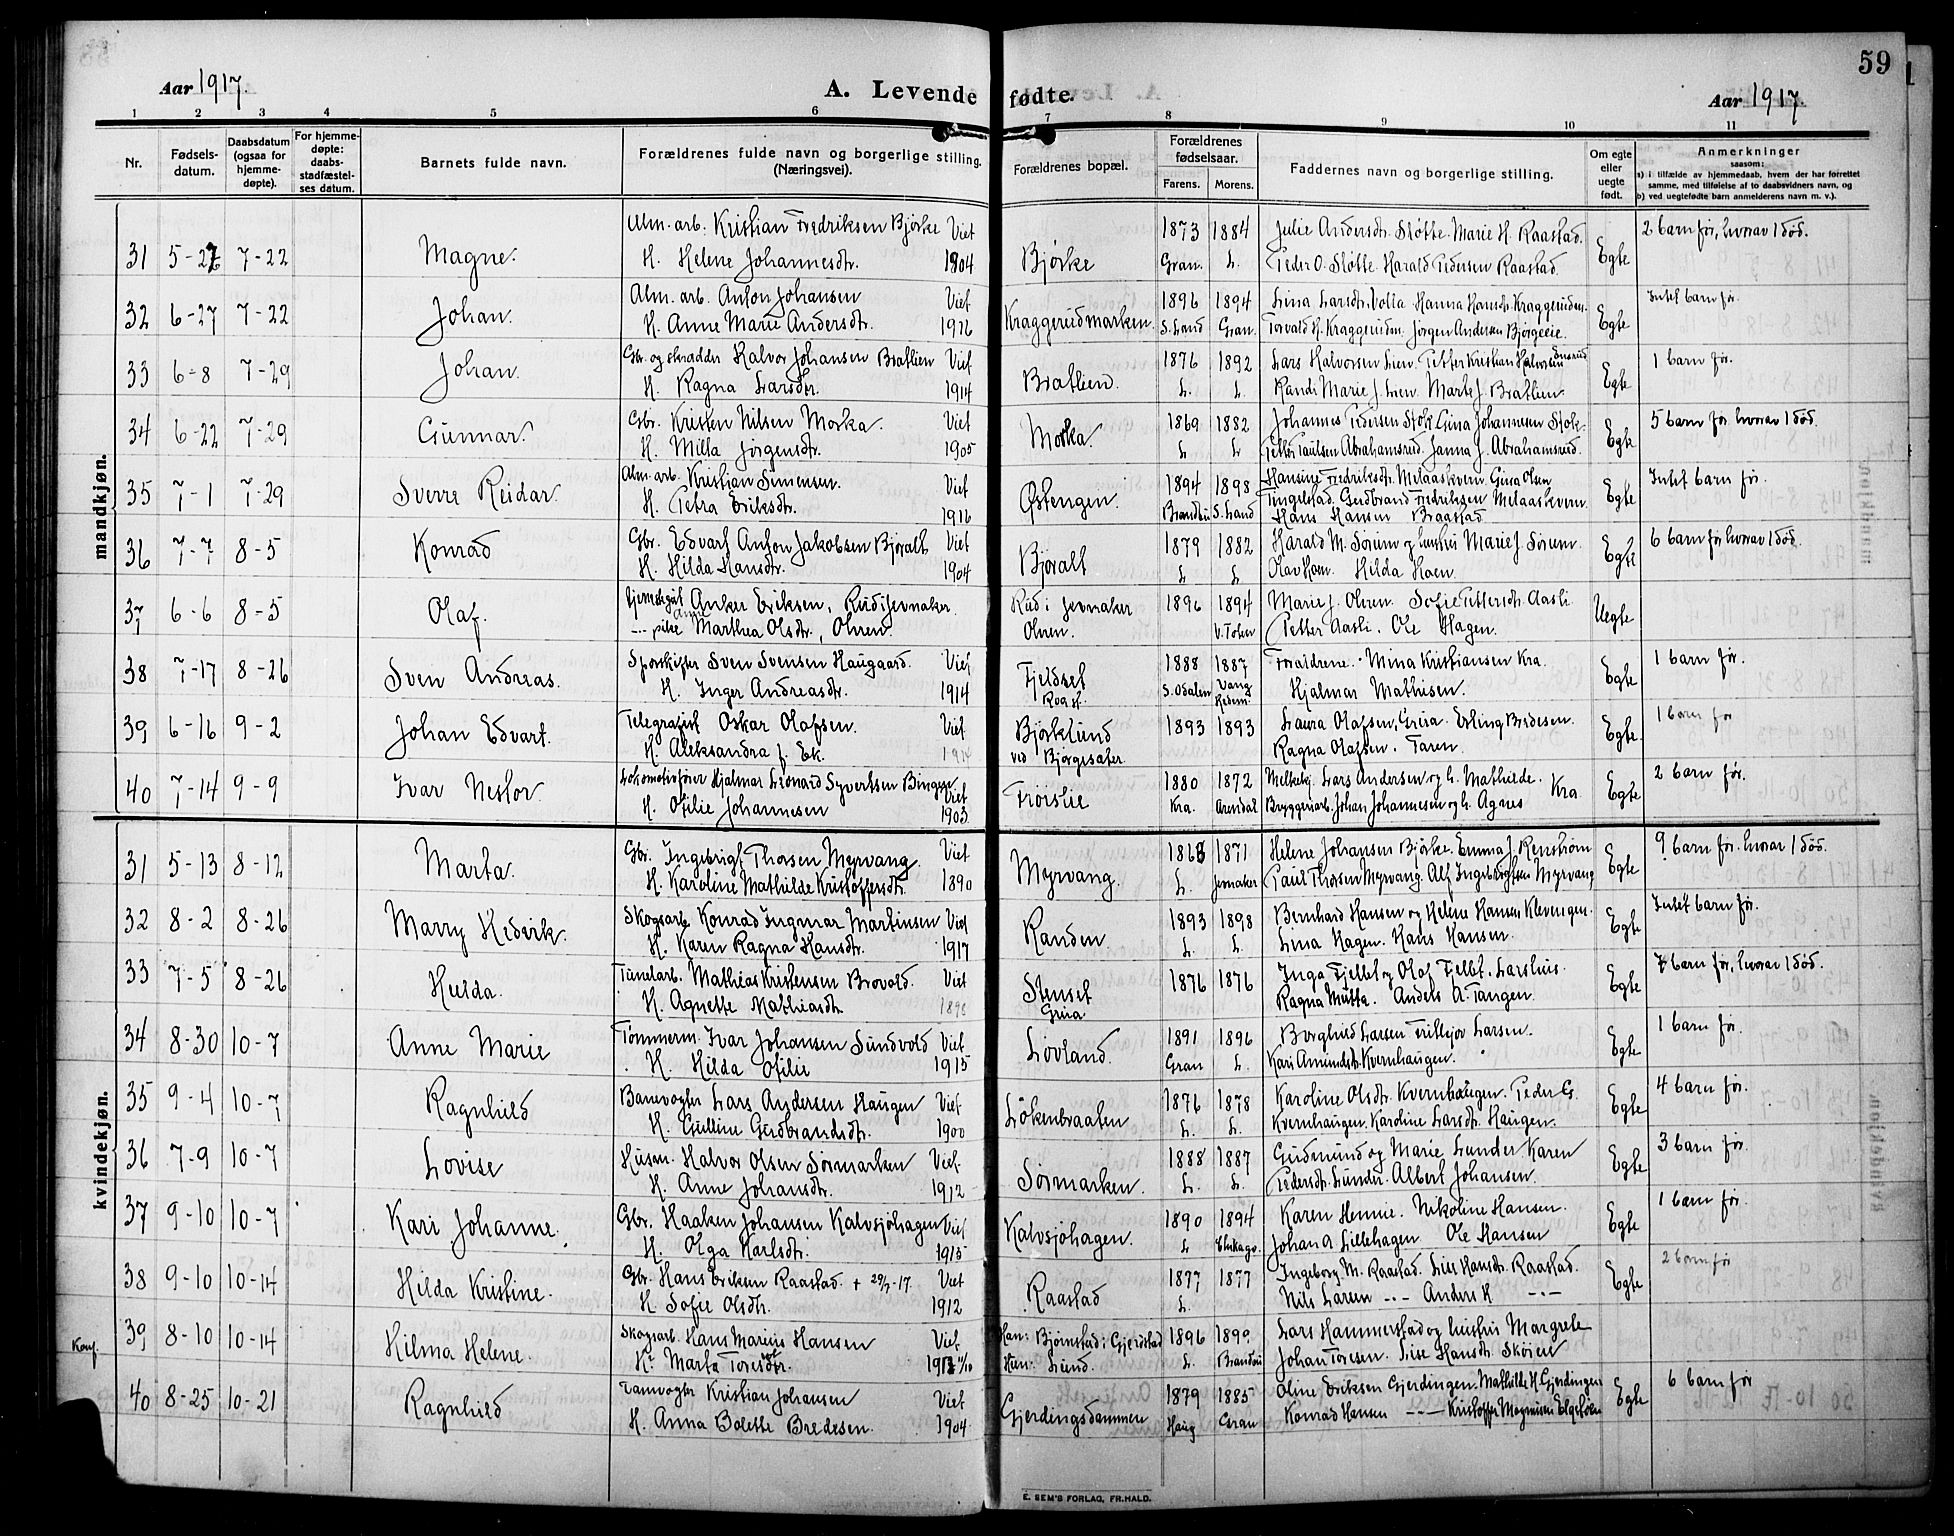 59
Aar 1917.
A. Levende fødte.
Aar 1917
1 2 3 4 5 6 7 8 9 10 11
Nr. Fødsels-datum. Daabsdatum (ogsaa for hjemme-døpte). For hjemme-døpte: daabs-stadfæstel-ses datum. Barnets fulde navn. Forældrenes fulde navn og borgerlige stilling. (Næringsvei). Forældrenes bopæl. Forældrenes fødselsaar. Farens. Morens. Faddernes navn og borgerlige stilling. Om egte eller uegte født. Anmerkninger saasom: a) i tilfælde av hjemmedaab, hvem der har forrettet samme, med tilføielse af to daabsvidners navn, og b) ved uegtefødte barn anmelderens navn m. v.).
mandkjøn.
Alm. arb. Kristian Fredriksen Bjørke Viet 1873 1884 Julie Andersdr. Sløtte. Marie H. Raastad. 2 barn før, hvorav 1 død.
31 5-27 7-22 Magne. H. Helene Johannesdtr. 1904 Bjørke Gran. L. Peder O. Sløtte. Harald Pedersen Raastad. Egte
Alm. arb. Anton Johansen Viet 1896 1894 Lina Larsdtr. Volla Hanna Hansdtr. Kraggerudm. Intet barn før.
32 6-27 7-22 Johan. H. Anne Marie Andersdtr. 1916 Kraggerudmarken. S. Land Gran. Torvald H. Kraggerudm. Jørgen Andersen Bjørgeeie. Egte
Gbr. og skrædder Halvor Johansen Bratlien Viet 1876 1892 Lars Halvorsen Lien. Petter Kristian Halvorsen 1 barn før.
33 6-8 7-29 Johan. H. Ragna Larsdtr. 1914 Bratlien. L. L. Randi Marie J. Lien. Marte J. Bratlien. Egte
Gbr. Kristen Nilsen Morka. Viet 1869 1882 Johannes Pedersen Stok. Gina Johannesen Stok. 5 barn før hvorav 1 død.
34 6-22 7-29 Gunnar. H. Milla Jørgensdtr. 1905 Morka. L L Petter Paulsen Abrahamsrud. Janna J. Abrahamsrud. Egte
Alm. arb. Kristian Simensen. Viet 1894 1898 Hansine Fredriksdtr. Melaaskvern. Gina Olsen Intet barn før.
35 7-1 7-29 Sverre Reidar. H. Petra Eriksdtr. 1916 Østengen. Brandbu S. Land Tingelstad. Gudbrand Fredriksen Melaaskvern. Hans Hansen Braastad. Egte
Gbr. Edvart Anton Jakobsen Bjøralt Viet 1879 1882 Harald M. Sørum og hustru Marie J. Sørum. 6 barn før hvorav 1 død.
36 7-7 8-5 Konrad H. Hilda Hansdtr. 1904 Bjøralt L L Olav Haen. Hilda Haen. Egte
Anker Eriksen, Rud i Jevnaker. Rud i Jevnaker 1896 1894 Marie J. Ohren. Sofie Pettersdtr. Aasli
37 6-6 8-5 Olaf. pike Marthea Olsdtr., Ohren. Ohren. V. Toten Petter Aasli. Ole Hagen. Uegte
Sporskifter Sven Svensen Haugaard. Viet Fjeldset 1888 1887 Forældrene. Mina Kristiansen Kra. 1 barn før.
38 7-17 8-26 Sven Andreas. H. Inger Andreasdtr. 1914 Roa st. S. Odalen Vang Hedem. Hjalmar Mathisen. Egte
Telegrafist Oskar Olafsen. Viet Bjørklund 1893 1893 Laura Olafsen, Grua. Erling Bredesen. 1 barn før
39 6-16 9-2 Johan Edvart. H. Aleksandra f. Ek. ved Bjørgesæter. Ragna Olafsen. Taren. Egte.
Lokomotivfører Hjalmar Leonard Syvertsen Bingen Viet 1880 1872 Lars Andersen og h. Mathilde. Kra. 2 barn før.
40 7-14 9-9 Ivar Nestor. H. Otilie Johannesen 1903. Frøislie Kra. Arendal Bryggeriarb. Johan Johannesen og h. Agnes Egte
kvindekjøn.
Gbr. Ingebrigt Thorsen Myrvang. Viet 1868 1871 Helene Johansen Bjørke. Emma J. Renstrøm 9 barn før. hvorav 1 død.
31 5-13 8-12 Marta. H. Karoline Mathilde Kristoffersdtr. 1890 Myrvang. L. Jevnaker Paul Thorsen Myrvang. Alf Ingebrigtsen Myrvang Egte
Skogsarb. Konrad Ingmar Martinsen Viet 1893 1898 Bernhard Hansen og Helene Hansen Klevengen. Intet barn før.
32 8-2 8-26 Marry Hedvik. H. Karen Ragna Hansdtr. 1917 Randen. L. L. Lina Hagen. Hans Hansen. Egte
Tunelarb. Mathias Kristensen Brovold. Viet Stenset 1876 1876 Inga Fjellet og Olaf Fjellet. Larshus. 7 barn før, hvorav 1 død.
33 7-5 8-26 Hulda. H. Agnette Mathiasdtr. Grua Ragna Mutta. Anders A. Tangen. Egte
Tømmerm. Ivar Johansen Sundvold Viet 1891 1896 Borghild Larsen Fritkjov Larsen. 1 barn før.
34 8-30 10-7 Anne Marie H. Hilda Otilie 1915 Løvland. Gran L. Kari Amundsdtr. Kvernhaugen. Egte
Banevogter Lars Andersen Haugen Viet 1876 1878 Karoline Olsdtr. Kvernhaugen. Peder G. 4 barn før.
35 9-4 10-7 Ragnhild H. Gulline Gudbrandsdtr. 1900 Løkenbraaten L. L. Kvernhaugen. Karoline Larsdtr. Haugen. Egte
Husm. Halvor Olsen Sørmarken Viet 1888 1887 Gudmund og Marie Lunder. Karen 3 barn før.
36 7-9 10-7 Lovise H. Anne Johansdtr. 1912 Sørmarken. L. L. Pedersdtr. Lunder. Albert Johansen. Egte
Gbr. Haaken Johansen Kalvsjøhagen Viet 1890 1894 Karen Hennie. Nikoline Hansen. 1 barn før.
37 9-10 10-7 Kari Johanne. H. Olga Karlsdtr. 1915 Kalvsjøhagen. L Chikago. Johan A. Lillehagen. Ole Hansen Egte
Gbr. Hans Eriksen Raastad. + 29/7-17. Viet 1877 1877 Ingeborg M. Raastad. Lies Hansdtr. Raastad. 2 barn før
38 9-10 10-14 Hilda Kristine. H Sofie Olsdtr. 1912 Raastad L. Nils Larsen -"- Anders K -"- Egte
Konf. Skogsarb. Hans Marius Hansen Viet Han: Bjørnstad i Gjerdstad 1896 1899. Lars Hammerstad og hustru Margrete
39 8-10 10-14 Hilma Helene. H. Marta Toresdtr. Hun: Lund. L. Brandbu Johan Toresen. Lise Hansdtr. Skøien
Damvogter Kristian Johansen Viet 1879 1885 Oline Eriksen Gjerdingen. Mathilde H. Gjerdingen 6 barn før
40 8-25 10-21 Ragnhild H. Anna Bolette Bredesen. 1904 Gjerdingsdammen Haug Gran. Konrad Hansen -"- Kristoffer Magnusen Elgstøen Egte
E. SEM'S FORLAG, FR.HALD.